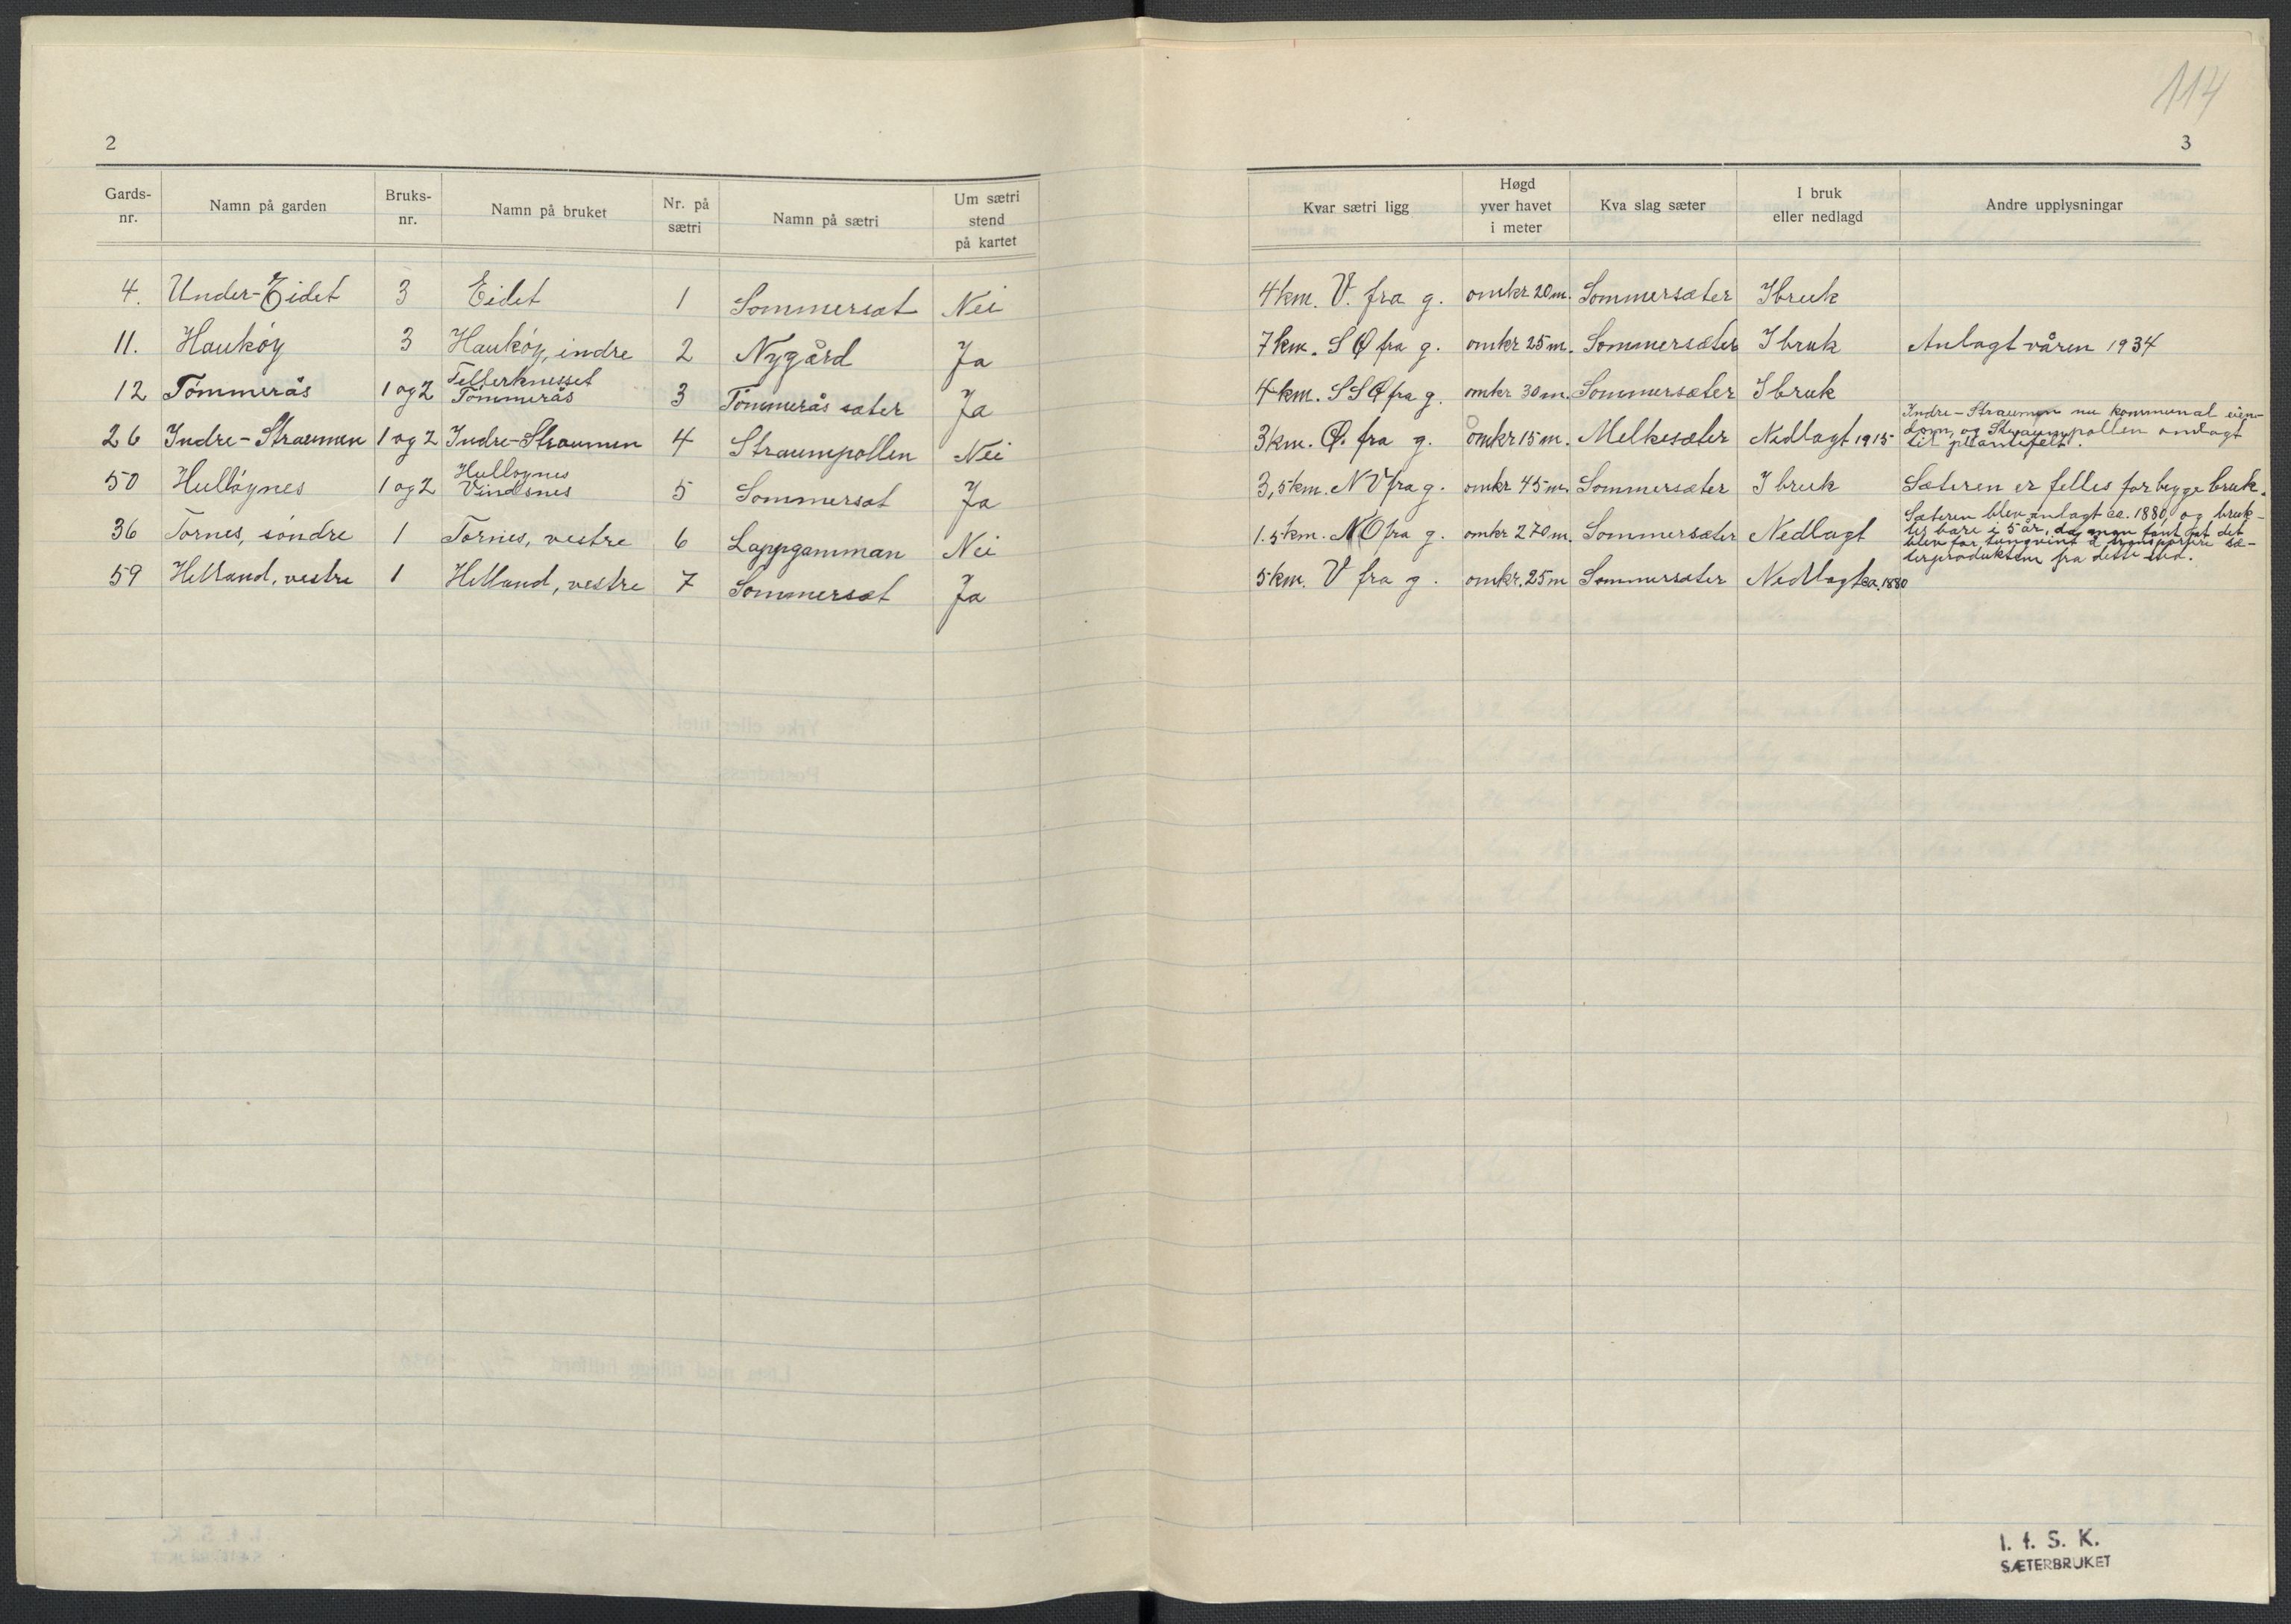 114
2
3
Gards-nr. Namn på garden Bruks-nr. Namn på bruket Nr. på sætri Namn på sætri Um sætri stend på kartet Kvar sætri ligg Høgd yver havet i meter Kva slag sæter I bruk eller nedlagd Andre upplysningar
4. Under-Eidet 3 Eidet 1 Sommersæt Nei 4 km. V. fra g. omkr 20 m. Sommersæter I bruk
11. Haukøy 3 Haukøy, indre 2 Nygård Ja 7 km. S Ø fra g. omkr 25 m. Sommersæter I bruk Anlagt våren 1934
12 Tømmerås 1 og 2 Tømmerås 3 Tømmerås sæter Ja 4 km. S S Ø fra g. omkr 30 m. Sommersæter I bruk
26 Indre-Straumen 1 og 2 Indre-Straumen 4 Straumpollen Nei 3 km. Ø. fra g. omkr 15 m. Melkesæter Nedlagt 1915 Indre-Straumen nu kommunal eien-
dom, og Straumpollen anlagt
til plantefelt.
50 Hulløynes 1 og 2 Hulløynes
Vindsnes 5 Sommersæt Ja 3,5 km. N V fra g. omkr 45 m. Sommersæter I bruk Sæteren er felles for begge bruk.
36 Tornes, søndre 1 Tornes, vestre 6 Lappgamman Nei 1.5 km. N O fra g. omkr 270 m. Sommersæter Nedlagt Sæteren blev anlagt ca. 1880, og bruk-
tes bare i 5 år, da man fant at det
blev for tungvint å transportere sæ-
terproduktene fra dette sted.
59 Helland, vestre 1 Helland, vestre 7 Sommersæt Ja 5 km. V fra g. omkr. 25 m Sommersæter Nedlagt ca. 1880
I. f. S. K.
SÆTERBRUKET